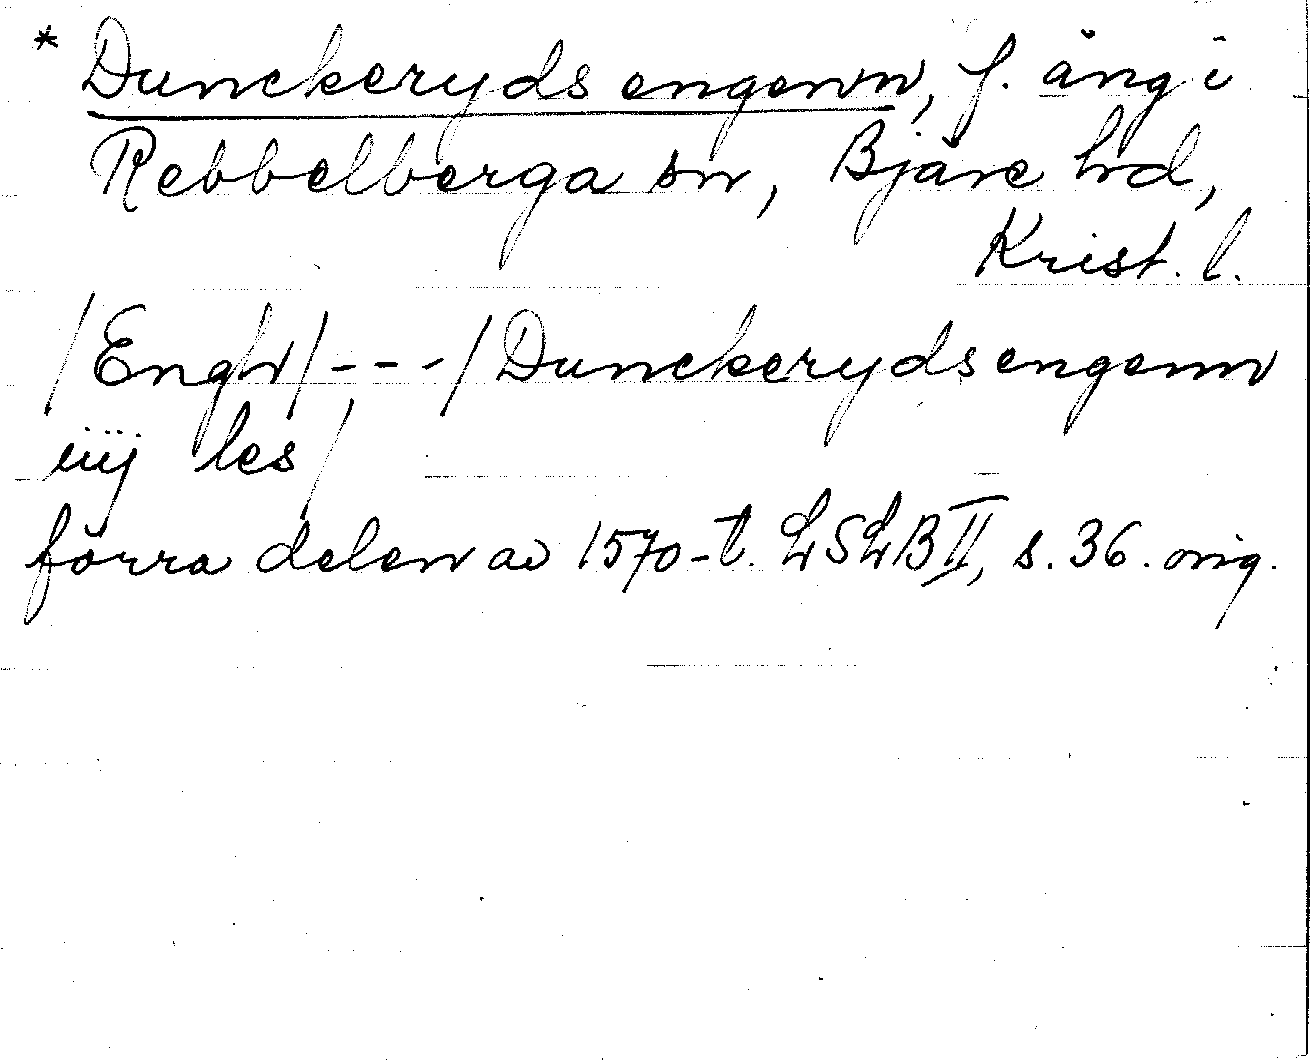 * Dunckeryds engenn, f. äng i
Rebbelberga sn, Bjäre hd,
Krist. l.
/Engh/---/Dunckeryds engenn
iiij les/
förra delen av 1570-t. LSLB II, s. 36. orig.